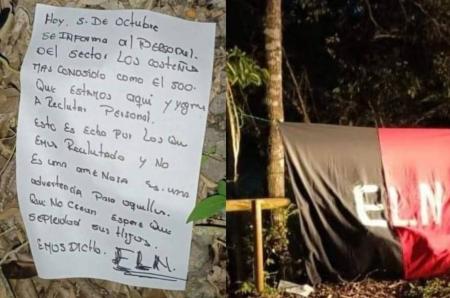 Hoy, 5 DE Octubre
SE INFORMA al PERSONAL
DEl sector Los costeños
MAS CONOSIDO COMO El 500.
QUE ESTAMOS AQUI y
A Reclutar Personal.
Esto Es Echo por Los QUE
EMOS Reclutado y NO
Es una AMENAZA Es una
advertencia Para aquellos
QUE NO CREAN Espero QUE
sus Hijos.
EMOS DICHO. ELN.
ELN